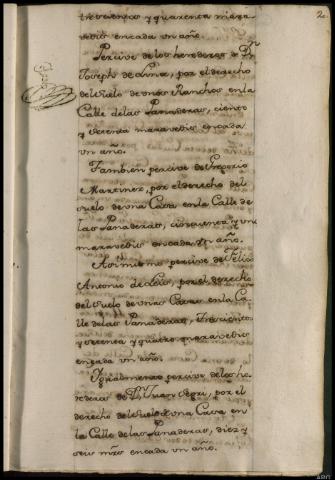 2
trescientos y quarenta marâ
vedis encada un año.
Percive de los herederos de Dn
Joseph de Luna, por el derecho
del suelo de unos Ranchos en la
Calle de las Panaderas, ciento
y setenta maravedis encada
un año.
Tambien percive de Gregorio
Martinez, por el derecho del
suelo de una Casa en la Calle de
las Panaderas, cinquenta y un
maravedis encada un año.
Asimismo percive de Felix
Antonio de por el derecho
del suelo de unas Casas en la Ca
lle de las Panaderas, trescientos
y setenta y quatro maravedis
encada un año.
Igualmente percive de los he
rederos de Dn Juan por el
derecho del suelo de una Casa en
la Calle de las Panaderas, diez y
seis mrs encada un año.